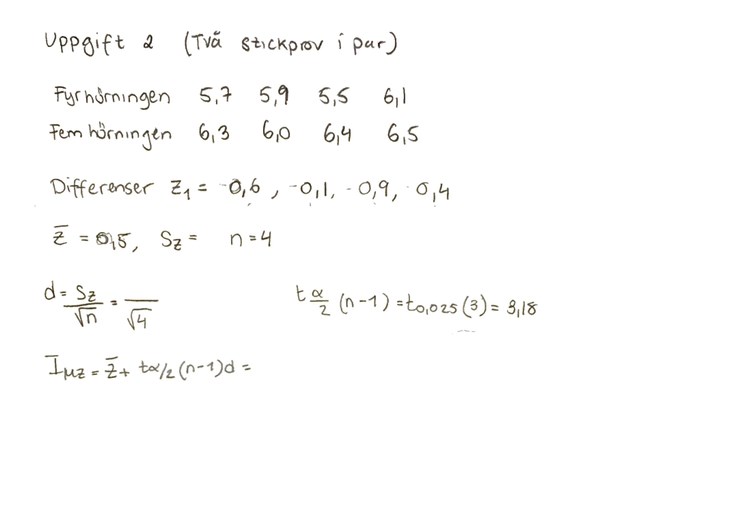 Uppgift 2 (Två stickprov i par)
Fyrhörningen 5,7 5,9 5,5 6,1
Femhörningen 6,3 6,0 6,4 6,5
Differenser z₁ = -0,6, -0,1, -0,9, -0,4
z̄ = 0,5, Sz = n = 4
d = Sz/√n = /√4 t α/2 (n-1) = t0,025(3) = 3,18
Iμz = z̄ + tα/2 (n-1)d =